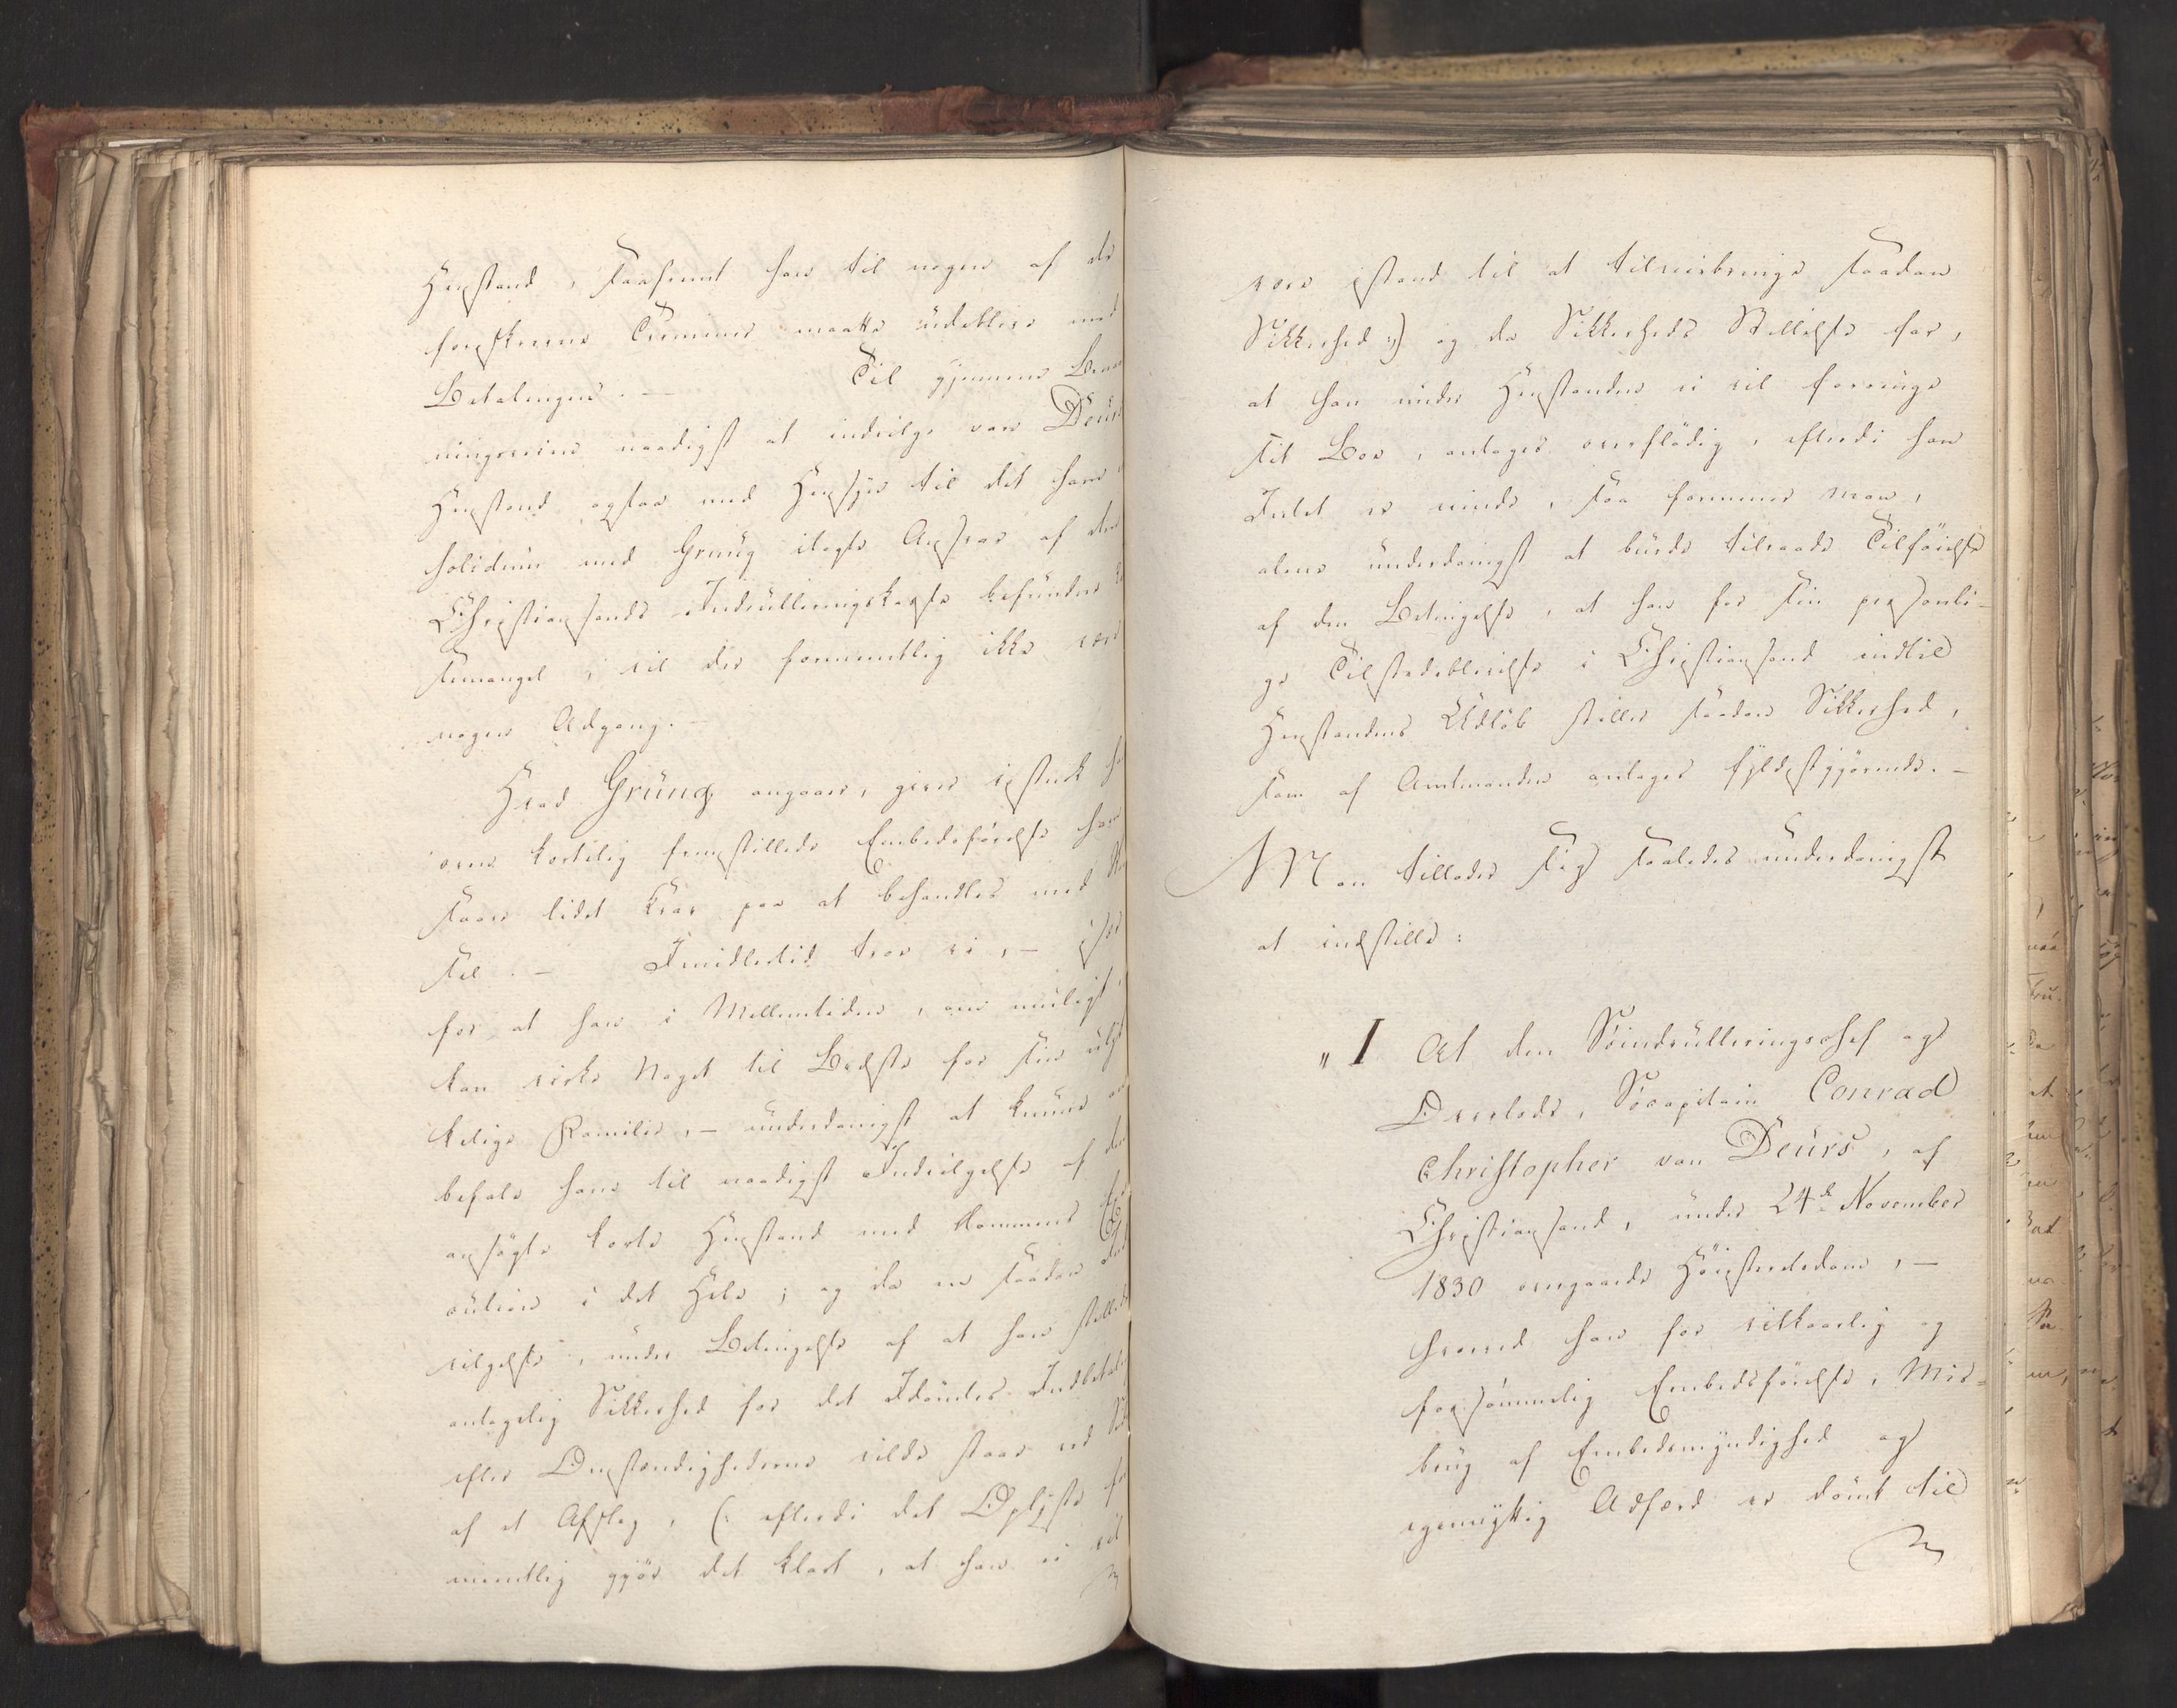 Henstand, saafremt han til nogen af de
foreskrevne Terminer maatte udeblive med
Betalingen. — Til gjennem Be
ningsveien naadigst at indvilge van Deurs
Henstand ogsaa med Hensyn til det ham
solidum med Grüng ilagte Ansvar af den
Christiansands Indrulleringskasse befundne
Kassemangel, vil der formeentlig ikke være
nogen Adgang. —
Hvad Grüng angaaer, giver vistnok
oven kortelig fremstillede Embedsførelse ham
saare lidet Krav paa at behandles med
sel. — Imidlertid troe vi, — især
for at han i Mellemtiden, om muligt,
kan virke Noget til Bedste for sin ulyk
kelige Familie, — underdanigst at kunne an
befale ham til naadigst Indvilgelse af den
ansøgte korte Henstand med Dommens Exe
cution i det Hele; og da en saadan Ind
vilgelse, under Betingelse af at han stillede
antagelig Sikkerhed for det Idømtes Indbetaling
efter Omstændighederne vilde staae ved
af et Afslag, (: efterdi det Oplyste for
meentlig gjør det klart, at han ei vil
være istand til at tilveiebringe saadan
Sikkerhed :) og da Sikkerheds Stillelse for,
at han under Henstanden ei vil forringe
sit Boe, antages overflødig, efterdi han
Intet er eiende, saa formener man,
alene underdanigst at burde tilraade Tilføielse
af den Betingelse, at han for sin personli-
ge Tilstedeblivelse i Christiansand indtil
Henstandens Udløb stiller saadan Sikkerhed,
som af Amtmanden antages fyldestgjørende. —
Man tillader sig saaledes underdanigst
at indstille:
„I At den Søindrulleringschef og
Overlods, Søcapitain Conrad
Christopher van Deurs, af
Christiansand, under 24de November
1830 overgaaede Høiesteretsdom, —
hvorved han for vilkaarlig og
forsømmelig Embedsførelse, Mis-
brug af Embedsmyndighed og
egennyttig Adfærd er dømt til